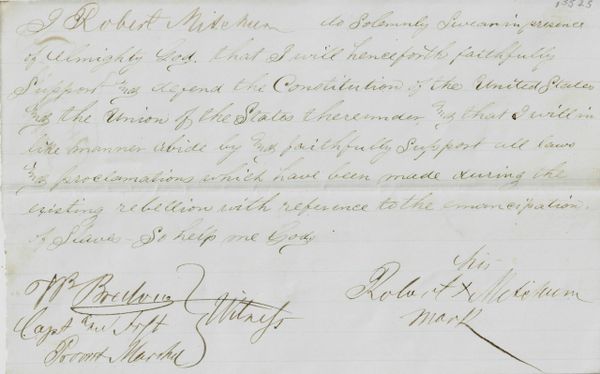 13525
I Robert Mitchum do Solemnly Swear in presence
of Almighty God, that I will henceforth faithfully
Support and defend the Constitution of the United States
and the Union of the States thereunder and that I will in
like manner abide by and faithfully Support all laws
and proclamations which have been made during the
existing rebellion with reference to the emancipation
of Slaves - So help me God
his
Robert X Mitchum
mark
Witness
Capt and
Provost Marshal